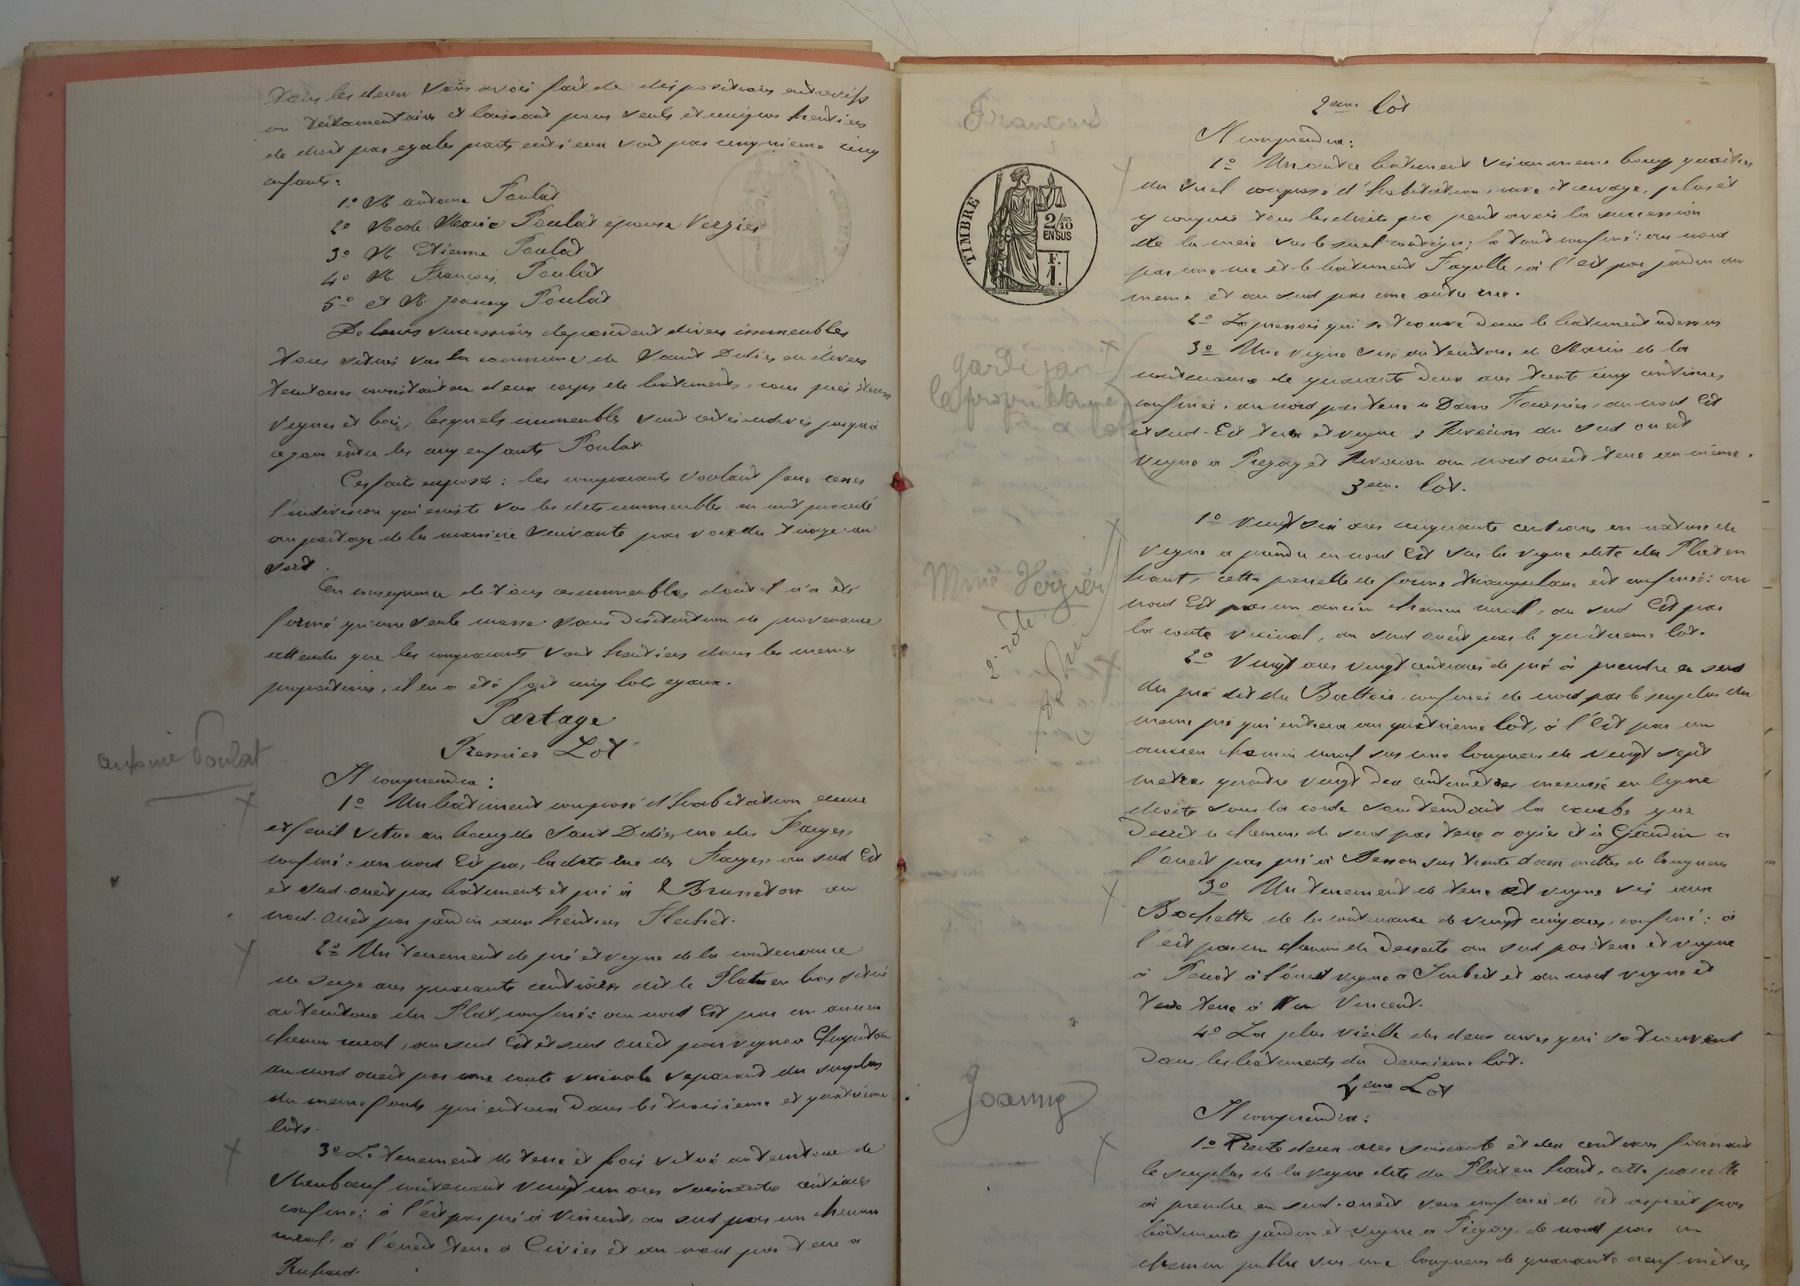 tous les deux sans avoir fait de dispositions entrevifs
ou testamentaires et laissant pour seuls et uniques héritiers
de droit par egales parts entr'eux soit par cinquieme cinq
enfants:
1º M. antoine Poulat
2º Made Marie Poulat épouse Verzier
3º M. Etienne Poulat
4º M. François Poulat
5º et M. Joanny Poulat
De leurs successions dependent divers immeubles
tous situés sur la commune de Saint Didier en divers
territoires consistant en deux corps de batiments, cour, prés, terres
vignes et bois, lesquels immeubles sont restés indivis jusqu'à
ce jour entre les cinq enfants Poulat
Ces faits exposés: les comparants voulant faire cesser
l'indivision qui existe sur les dits immeubles en ont procédé
au partage de la manière suivante par voie du tirage au
sort.
En consequence de tous ces immeubles dont il n'a été
formé qu'une seule masse sans distinction de provenance
attendu que les comparants sont heritiers dans les memes
proportions, il en a été fait cinq lots egaux.
Partage
Premier Lot
antoine Poulat
Il comprendra:
1º Un batiment composé d'habitation, ecurie
et fenil situé au bourg de Saint Didier, rue des Farges,
confiné: au nord Est par la dite rue des Farges, au sud Est
et sud-ouest par batiments et pré à Bruneton au
nord-ouest par jardin aux heritiers Flechet.
2º Un tenement de pré et vigne de la contenance
de seize ares quarante centiares dit le Plat en bas situé
au territoire du Plat, confiné: au nord Est par un ancien
chemin rural, au sud Est et sud ouest par vigne a
au nord ouest par une route vicinale separant du surplus
du meme fonds qui entrera dans les troisieme et quatrième
lots.
3º Le tenement de terre et bois situé au territoire de
contenant vingt un ares soixante centiares
confiné: à l'est par pré à Vincent, au sud par un chemin
rural, à l'ouest terre a Civier et au nord par terre a
Richard.
2eme lot
François
Il comprendra:
1º Un autre batiment sis au meme bourg quartier
du sud composé d'habitation, cave et cuvage, plus et
y compris tous les droits que peut avoir la succession
de la mère sur le sud contigu; le tout confiné: au nord
par une rue et le batiment Fayolle, à l'est par jardin au
meme et au sud par une autre rue.
2º Le pressoir qui se trouve dans le batiment ci dessus
3º Une vigne sise au territoire de Marin de la
contenance de quarante deux ares trente cinq centiares
confinée, au nord par terre a Dame Fournier, au nord Est
et sud-Est terre et vigne à Rivoiron au sud ouest
vigne a Piegay et Rivoiron au nord ouest terre au même.
gardé par
le propriétaire
3eme lot.
1º Vingt six ares cinquante centiares en nature de
vigne a prendre en nord Est sur la vigne dite du Plat en
haut, cette parcelle de forme triangulaire est confinée: au
nord Est par un ancien chemin rural, au sud Est par
la route vicinal, au sud ouest par le quatrieme lot.
Mme Verzier
2e rôle
2º Vingt ares vingt centiares de pré à prendre en sud
du pré dit du Battois, confinés de nord par le surplus du
meme pré qui entrera au quatrieme lot, à l'est par un
ancien chemin rural sur une longueur de vingt sept
metres quatre vingt dix centimètres mesuré en ligne
droite sous la corde soustendant la courbe que
decrit le chemin de sud par terre a ogier et à Girardin a
l'ouest par pré à Besson sur trente deux mètres de longueur
3º Un tenement de terre et vigne sis aux
Bochettes de la contenance de vingt cinq ares, confiné: à
l'est par un chemin de desserte au sud par terre et vigne
à Penot à l'ouest vigne a Imbert et au nord vigne et
terre à Vincent.
4º La plus vieille des deux cuves qui se trouvent
dans les batiments du deuxieme lot.
4eme Lot
Joanny
Il comprendra:
1º Trente deux ares soixante et dix centiares formant
le surplus de la vigne dite du Plat en haut, cette parcelle
à prendre en sud-ouest sera confinée de cet aspect par
batiments jardin et vigne a Piégay, de nord par un
chemin public sur une longueur de quarante neuf mètres
TIMBRE
2/10 EN SUS
F. 1.